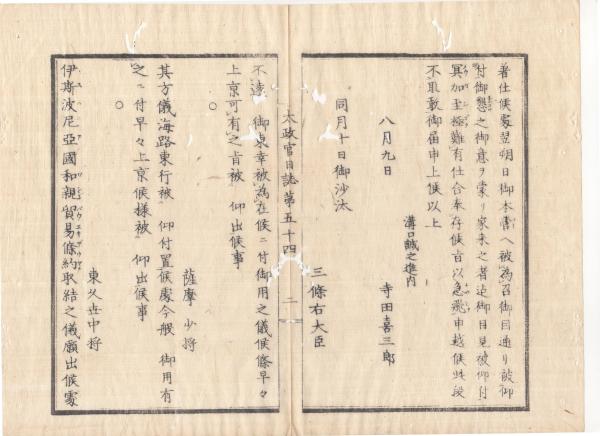 著仕候處翌明日御本営へ被為召御目通り被仰
付御懇之御意ヲ蒙リ家来之者迄御目見被仰付
冥加至極難有仕合奉存候旨以急飛申越候此段
不取敢御届申上候以上
八月九日
溝口誠之進内
寺田喜三郎
同月十日御沙汰
三條右大臣
太政官日誌第五十四
二
不遠 御東幸被為在候ニ付御用之儀候條早々
上京可有之旨被 仰出候事
○
薩摩少将
其方儀海路東行被 仰付置候處今般 御用有
之ニ付早々上京候様被 仰出候事
○
東久世中将
伊斯波尼亞國和親貿易條約取結之儀願出候處